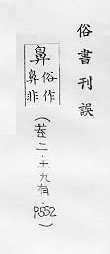 俗書刊誤
鼻
俗作
鼻非
(卷二·十九有·P552)